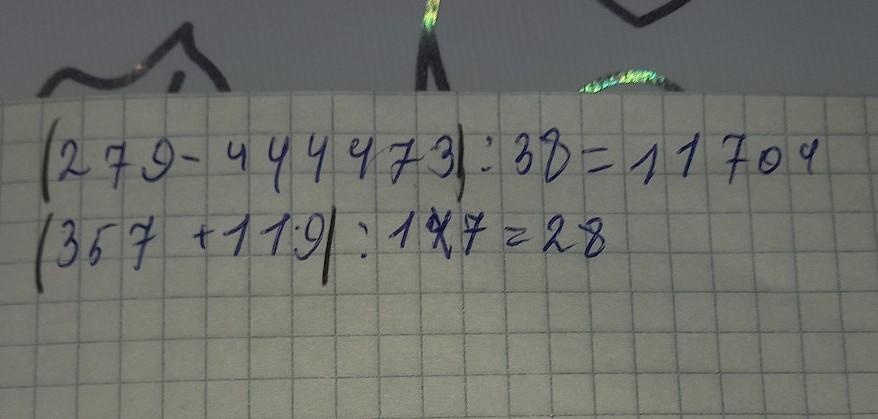 (279-444473):38=11704
(357+119):17=28